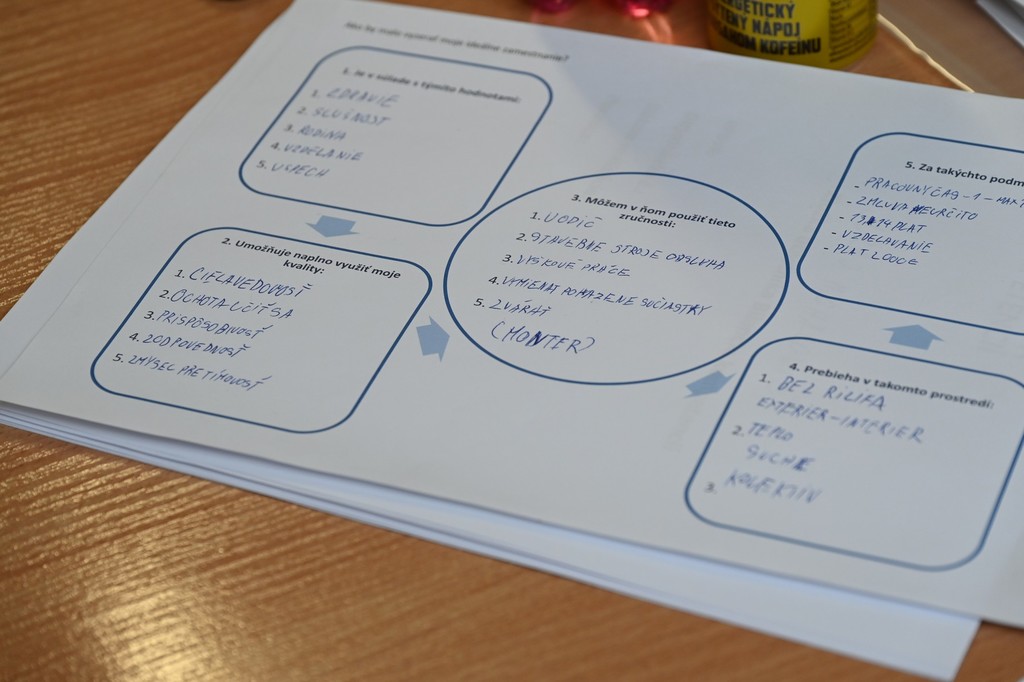 Ako by malo vyzerať moje ideálne zamestnanie?
1. Je v súlade s týmito hodnotami:
1. ZDRAVIE
2. SLUŠNOST
3. RODINA
4. VZDELANIE
5. USPECH
2. Umožňuje naplno využiť moje
kvality:
1. CIEĽAVEDOVOSŤ
2. OCHOTA UČIŤ SA
3. PRISPÔSOBIVOSŤ
4. ZODPOVEDNOSŤ
5. ZMYSEL PRE TÍMOVOSŤ
3. Môžem v ňom použiť tieto
zručnosti:
1. VODIČ
2. STAVEBNE STROJE OBSLUHA
3. VÝŠKOVÉ PRÁCE
4. VYMIEŇAT POKAZENE SÚČIASTKY
5. ZVÁRAŤ
(MONTER)
4. Prebieha v takomto prostredí:
1. BEZ RILIFA
EXTERIER-INTERIER
2. TEPLO
SUCHE
3. KOLEKTIV
5. Za takýchto podm
- PRACOVNÝ ČAS - 1 - MAX 1
- ZMLUVA NEURČITO
- 13, 14 PLAT
- VZDELAVANIE
- PLAT 2000€
RGETICKÝ
TENÝ NÁPOJ
AHOM KOFEÍNU